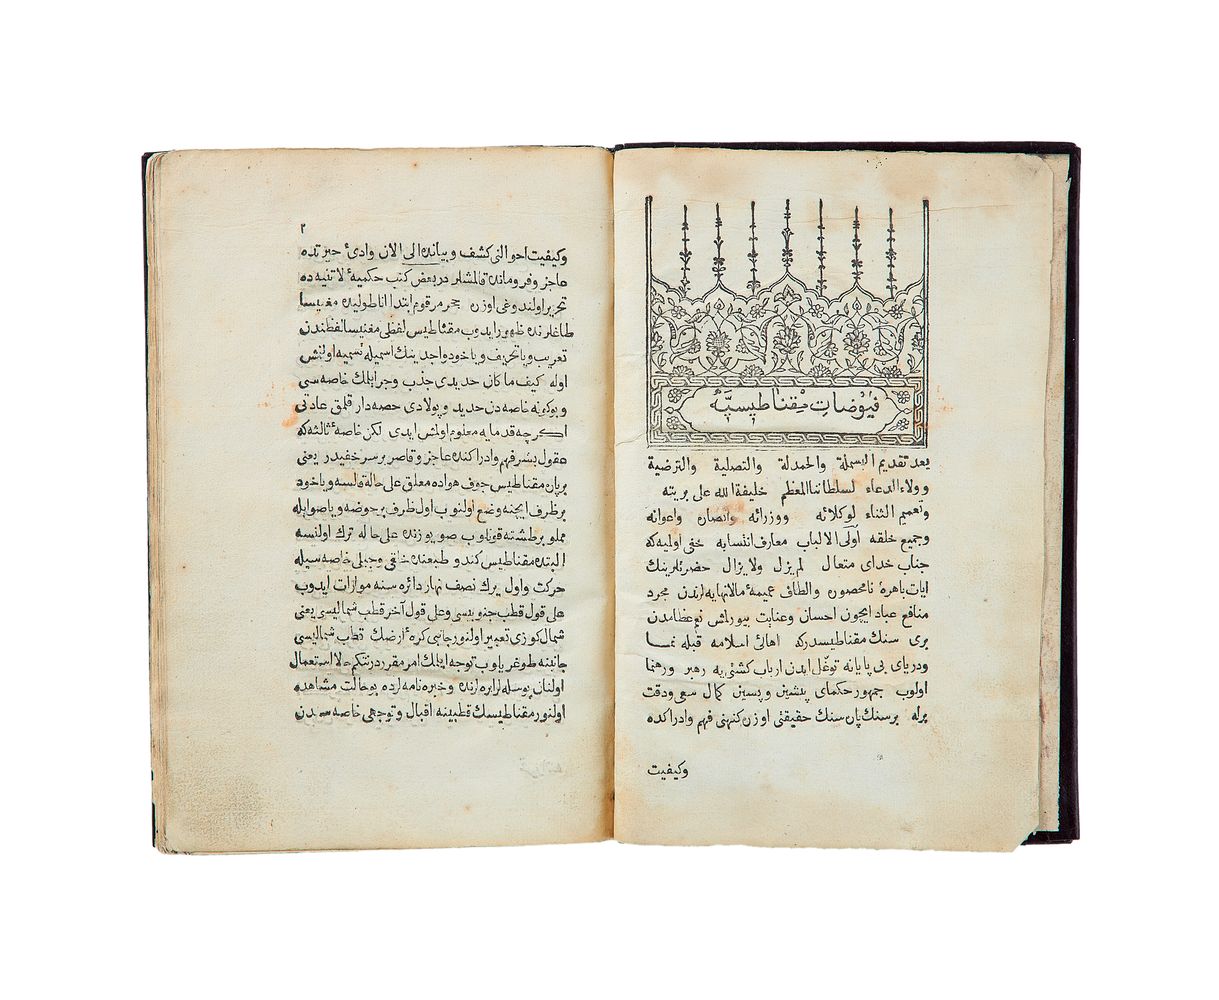 فيوضات مقناطيسيه
بعد تقديم البسملة والحمدلة والتصلية والترضية
وولاء الدعاء لسلطاننا المعظم خليفة الله على بريته
وتعميم الثناء لوكلائه ووزرائه وانصاره واعوانه
وجميع خلقه اولى الالباب معارف انتسابه خفى اوليه كه
جناب خداى متعال لم يزل ولا يزال حضرتلرينك
ايات باهرهٔ نامحصور والطاف عميمهٔ مالانهايه لرندن مجرد
منافع عباد ايچون احسان وعنايت بيورلمش نعم عظامدن
برى سنك مقناطيسدركه اهالئ اسلامه قبله نما
ودرياى بى پايانه توغل ايدن ارباب كشتى يه رهبر ورهنما
اولوب جمهور حكماى پيشين وپسين كمال سعى ودقت
برله بر سنك پاره سنك حقيقتى اوزره كنهنى فهم وادراكده
وكيفيت
٢
وكيفيت احوالنى كشف وبيانده الى الان وادئ حيرتده
عاجز وفرومانده قالمشلر در بعض كتب حكميهٔ لاتنيه ده
تحرير اولندوغى اوزره حجر مرقوم ابتدا اناطوليده مغنيسا
طاغلرنده ظهور ايدوب مقناطيس لفظى مغنيسا لفظندن
تعريب ويا تحريف ويا خود واجدينك اسميله تسميه اولنمش
اوله كيف ما كان حديدى جذب وجر ايلمك خاصه سى
وبو كونه خاصه دن حديد وپولادى حصه دار قلمق عادتى
اكرچه قدمايه معلوم اولمش ايدى لكن خاصهٔ ثالثه كه
عقول بشر فهم وادراكنده عاجز وقاصر بر سر خفيدر يعنى
بر پاره مقناطيس جوف هواده معلق على حاله قالسه ويا خود
بر ظرف ايچنه وضع اولنوب اول ظرف بر حوضه ويا صوايله
مملو بر طشته قونلوب صو يوزنده على حاله ترك اولنسه
البته مقناطيس كندو طبعنده خلقى وجبلى خاصه سيله
حركت واول يرك نصف نهار دائره سنه موازات ايدوب
على قول قطب جنوبيسى وعلى قول آخر قطب شماليسى يعنى
شمال كوزى تعبير اولنور جانبى كرهٔ ارضك قطب شماليسى
جانبنه طوغريلوب توجه ايلمك امر مقرردر نتكم حالا استعمال
اولنان پوسله لرده بو حالت مشاهده
اولنور مقناطيسك قطبينه اقبال وتوجهى خاصه سندن